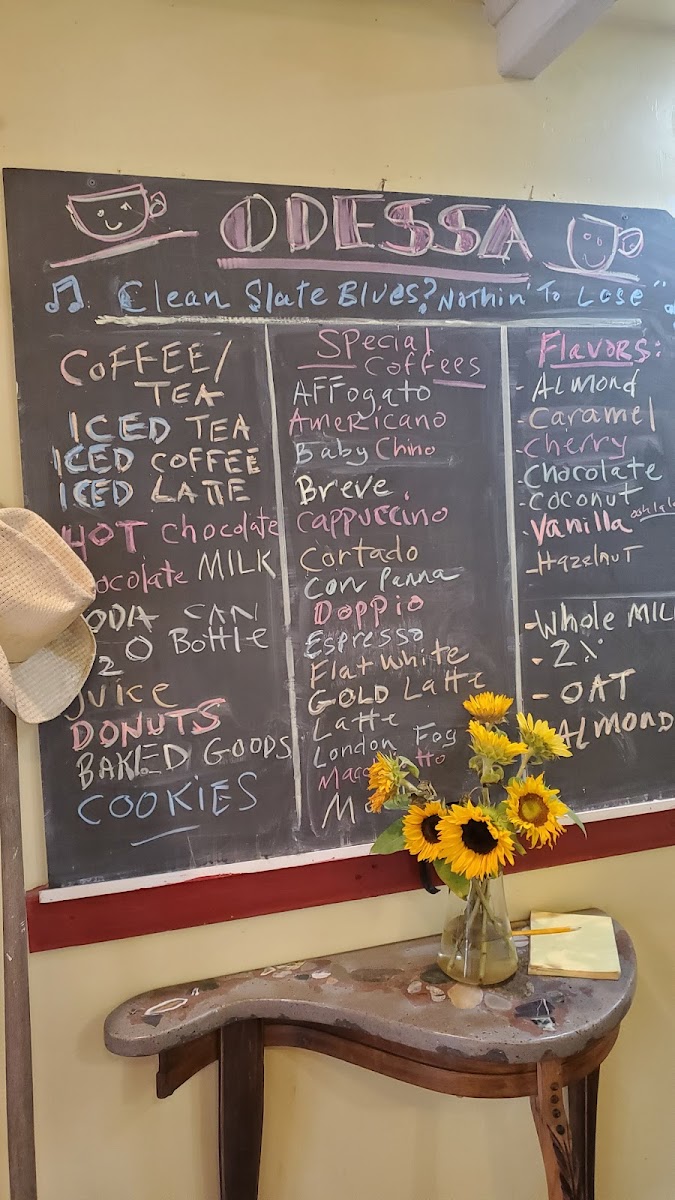 ODESSA
Clean Slate Blues? "Nothin' To Lose"
COFFEE/
TEA
ICED TEA
ICED COFFEE
ICED LATTE
HOT Chocolate
ocolate MILK
ODA CAN
2O Bottle
JUICE
DONUTS
BAKED GOODS
COOKIES
Special
Coffees
AFFogato
Americano
Baby Chino
Breve
Cappuccino
Cortado
Con Panna
Doppio
Espresso
Flat White
GOLD Latte
Latte
London Fog
Mac tto
M
Flavors:
- ALMOND
- Caramel
- Cherry
- Chocolate
- Coconut
- Vanilla ooh lala
- Hazelnut
- Whole MIL
- 2%
- OAT
ALMOND